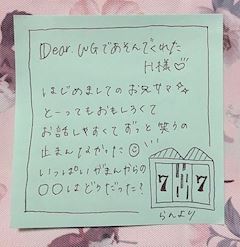 Dear. WGであそんでくれた
H様♡
はじめましてのお兄サマ☆
とーってもおもしろくて
お話しやすくてずっと笑うの
止まんなかった☺
いっぱいがまんからの
○○はどうだった？
7 7
らんより